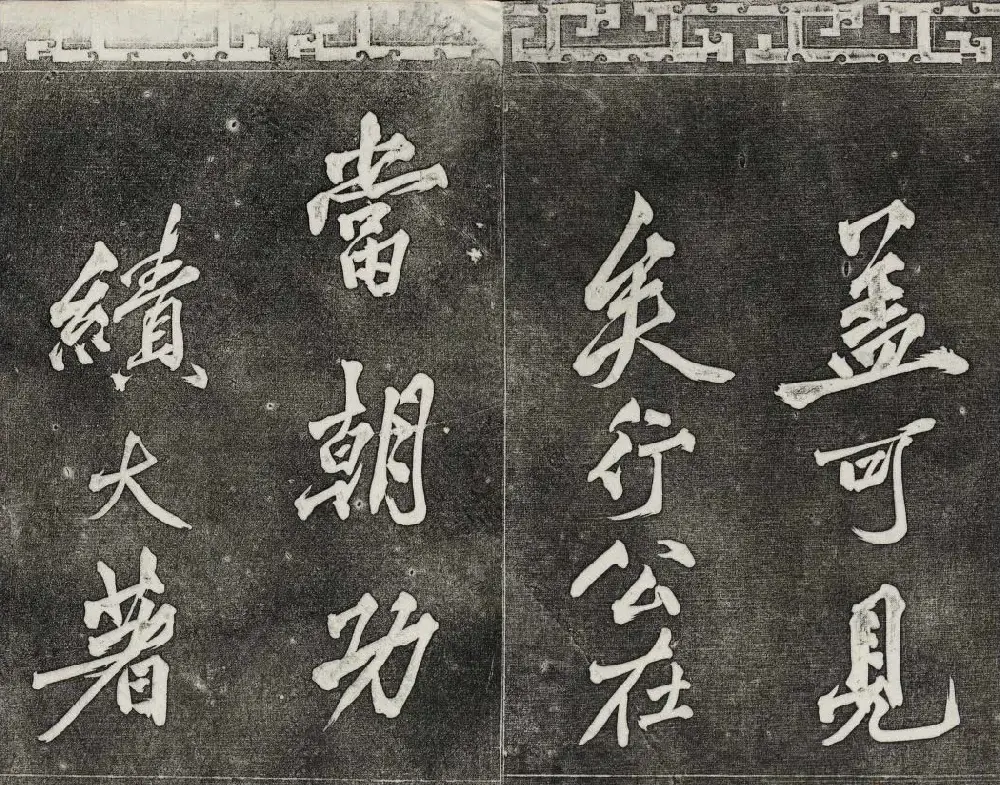 盖可見
矣行公在
當朝功
績大著